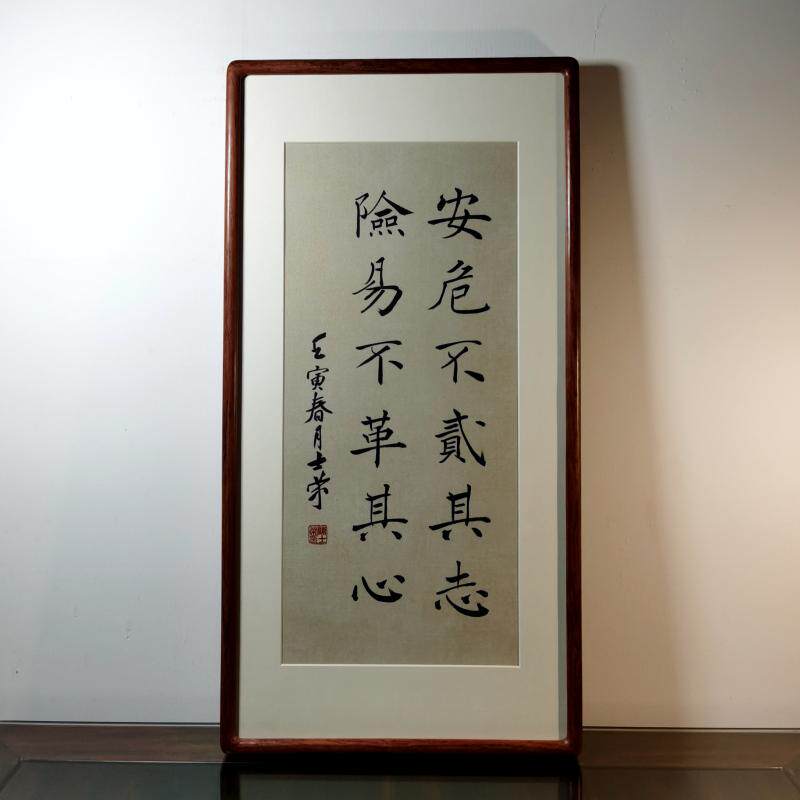 安危不貳其志
險易不革其心
壬寅春月士荣